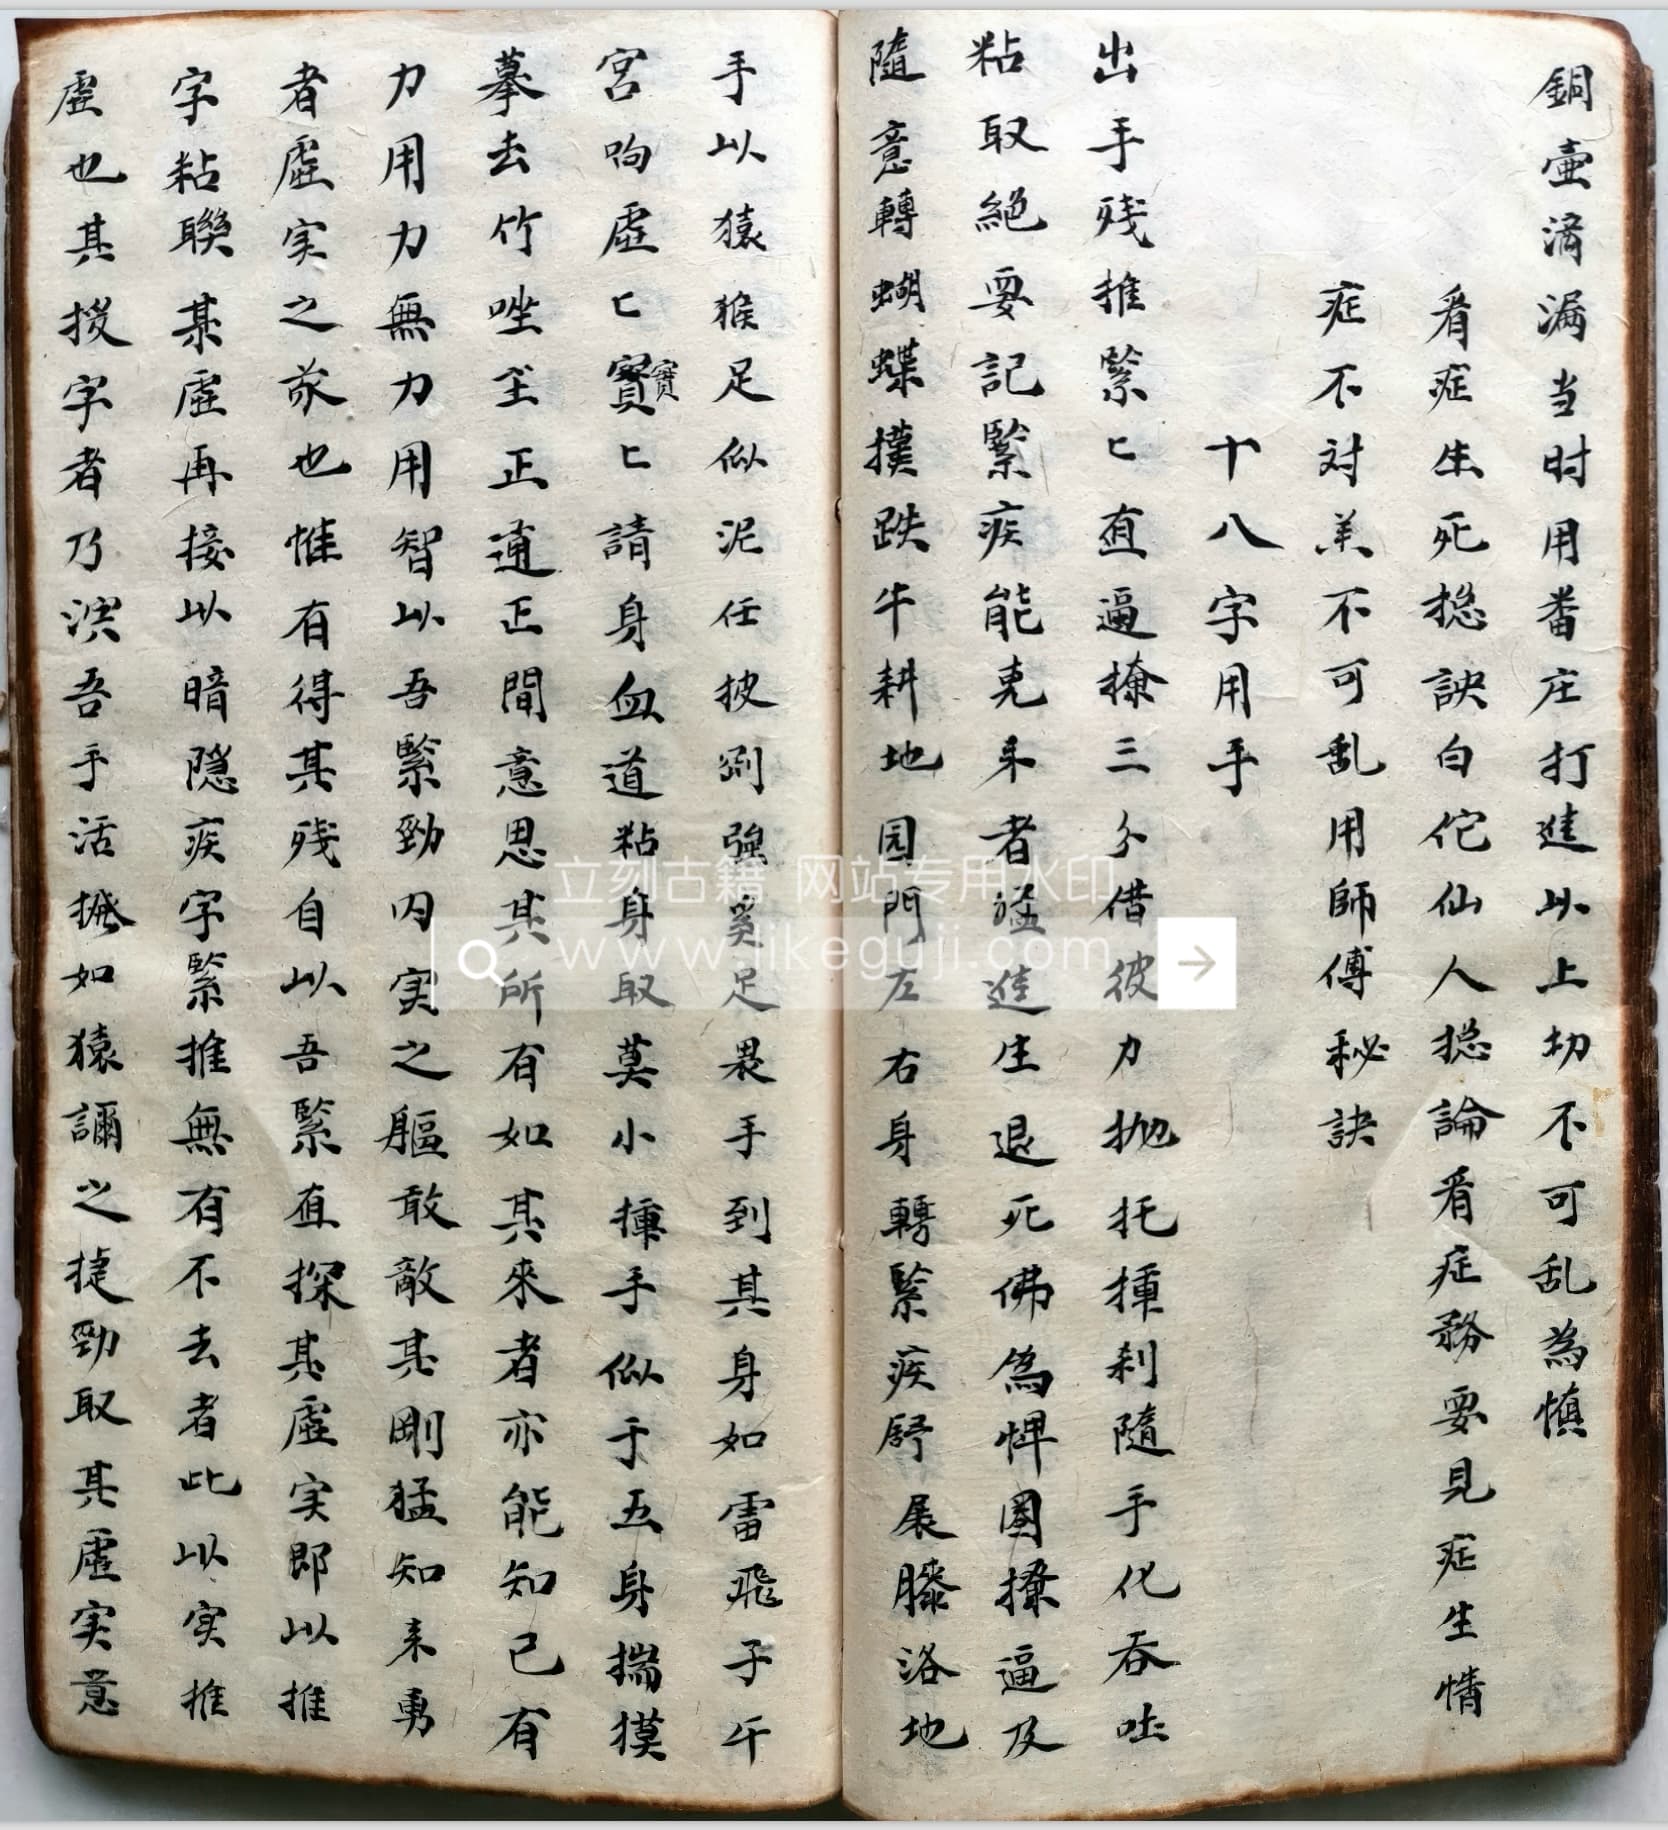 銅壷滴漏当时用番庄打進以上切不可乱為慎
看症生死捴訣白佗仙人捴論看症務要見症生情
症不对羔不可乱用師傅秘訣
十八字用手
出手残推緊匕直逼撩三分借彼力抛托揰刹隨手化吞吐
粘取絕要記緊疾能克釆者猛進庄退死佛為悝圈撩逼及
隨意轉蝴蝶撲跌牛耕地园門左右身轉緊疾舒展膝洛地
手以猿猴足似泥任披剐強奚足畏手到其身如雷飛子午
宮呴虛匕寶匕請身血道粘身取莫小揰手似于五身揣摸
寶
摹去竹唑坙正通正間意思其所有如其來者亦能知己有
力用力無力用智以吾緊勁内実之軀敢敵其剛猛知来勇
者虛実之敌也惟有得其残自以吾緊直探其虛実即以推
字粘聯某虛再接以暗隐疾字緊推無有不去者此以实推
虛也其授字者乃演吾手活撚如猿譎之捷勁取其虛実意
立刻古籍 网站专用水印
www.likeguji.com